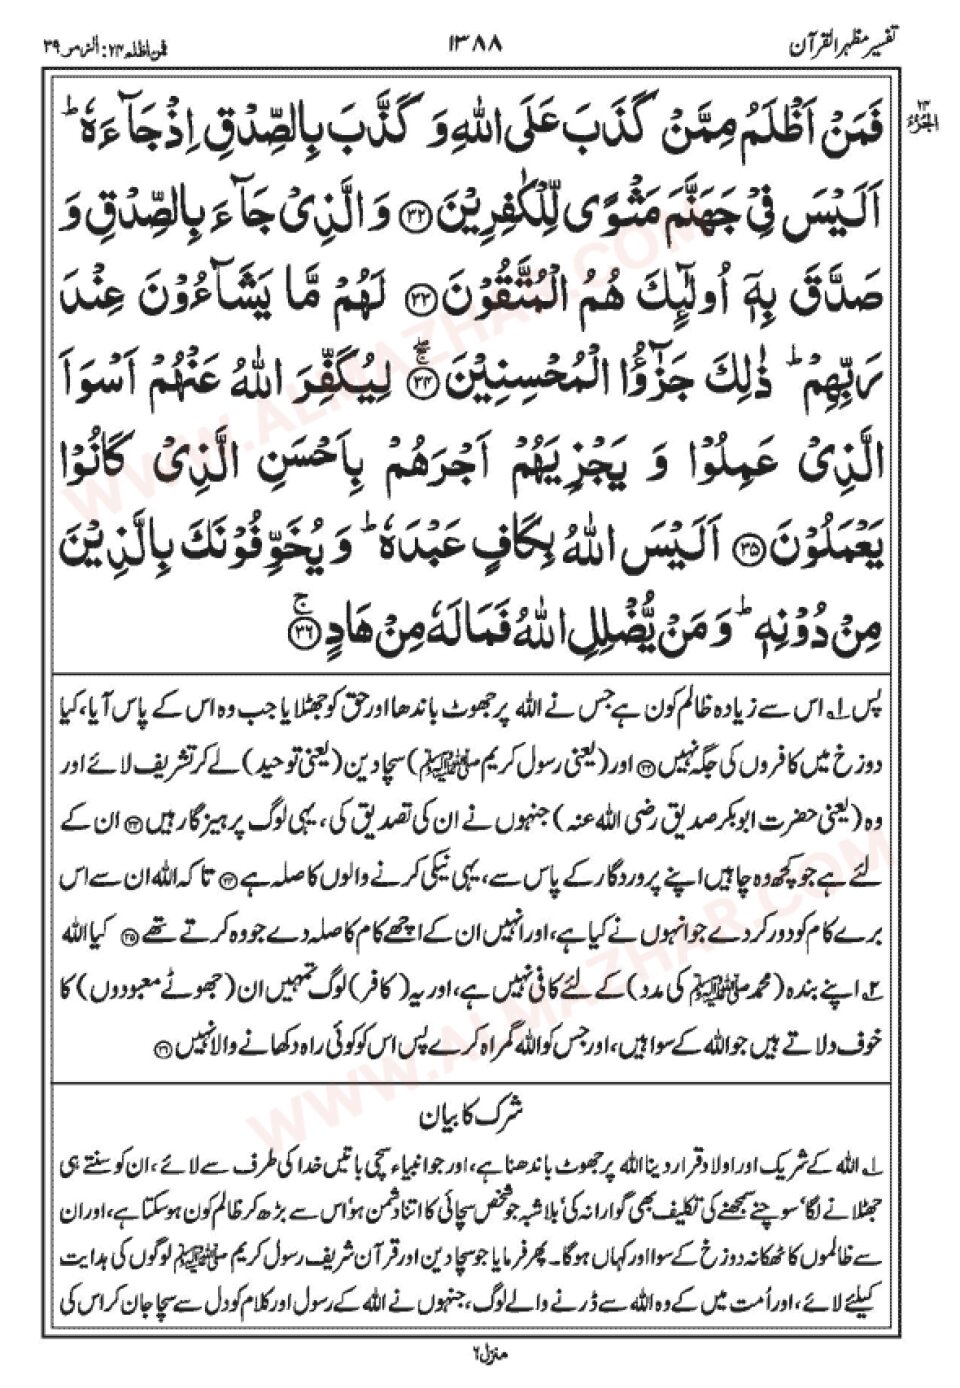 تفسیر مظہر القرآن
۱۳۸۸
فمن اظلم ۲۴: الزمر ۳۹
الجزء ۲۴
فَمَنْ اَظْلَمُ مِمَّنْ كَذَبَ عَلَى اللهِ وَ كَذَّبَ بِالصِّدْقِ اِذْ جَآءَهٗ ؕ
اَلَيْسَ فِيْ جَهَنَّمَ مَثْوًى لِّلْكٰفِرِيْنَ ﴿۳۲﴾ وَ الَّذِيْ جَآءَ بِالصِّدْقِ وَ
صَدَّقَ بِهٖۤ اُولٰٓئِكَ هُمُ الْمُتَّقُوْنَ ﴿۳۳﴾ لَهُمْ مَّا يَشَآءُوْنَ عِنْدَ
رَبِّهِمْ ؕ ذٰلِكَ جَزٰٓؤُا الْمُحْسِنِيْنَ ﴿۳۴﴾ لِيُكَفِّرَ اللهُ عَنْهُمْ اَسْوَاَ
الَّذِيْ عَمِلُوْا وَ يَجْزِيَهُمْ اَجْرَهُمْ بِاَحْسَنِ الَّذِيْ كَانُوْا
يَعْمَلُوْنَ ﴿۳۵﴾ اَلَيْسَ اللهُ بِكَافٍ عَبْدَهٗ ؕ وَ يُخَوِّفُوْنَكَ بِالَّذِيْنَ
مِنْ دُوْنِهٖ ؕ وَ مَنْ يُّضْلِلِ اللهُ فَمَا لَهٗ مِنْ هَادٍ ﴿۳۶﴾ ج
پس ۱؎ اس سے زیادہ ظالم کون ہے جس نے اللہ پر جھوٹ باندھا اور حق کو جھٹلایا جب وہ اس کے پاس آیا، کیا
دوزخ میں کافروں کی جگہ نہیں ﴿۳۲﴾ اور (یعنی رسول کریم ﷺ) سچا دین (یعنی توحید) لے کر تشریف لائے اور
وہ (یعنی حضرت ابوبکر صدیق رضی اللہ عنہ) جنہوں نے ان کی تصدیق کی، یہی لوگ پرہیزگار ہیں ﴿۳۳﴾ ان کے
لئے ہے جو کچھ وہ چاہیں اپنے پروردگار کے پاس سے، یہی نیکی کرنے والوں کا صلہ ہے ﴿۳۴﴾ تاکہ اللہ ان سے اس
برے کام کو دور کر دے جو انہوں نے کیا ہے، اور انہیں ان کے اچھے کام کا صلہ دے جو وہ کرتے تھے ﴿۳۵﴾ کیا اللہ
۲؎ اپنے بندہ (محمد ﷺ کی مدد) کے لئے کافی نہیں ہے، اور یہ (کافر) لوگ تمہیں ان (جھوٹے معبودوں) کا
خوف دلاتے ہیں جو اللہ کے سوا ہیں، اور جس کو اللہ گمراہ کرے پس اس کو کوئی راہ دکھانے والا نہیں ﴿۳۶﴾
شرک کا بیان
۱؎ اللہ کے شریک اور اولاد قرار دینا اللہ پر جھوٹ باندھنا ہے، اور جو انبیاء سچی باتیں خدا کی طرف سے لائے، ان کو سنتے ہی
جھٹلانے لگا، سوچنے سمجھنے کی تکلیف بھی گوارا نہ کی، بلا شبہ جو شخص سچائی کا اتنا دشمن ہو، اس سے بڑھ کر ظالم کون ہو سکتا ہے، اور ان
سے ظالموں کا ٹھکانہ دوزخ کے سوا اور کہاں ہوگا۔ پھر فرمایا جو سچا دین اور قرآن شریف رسول کریم ﷺ لوگوں کی ہدایت
کیلئے لائے، اور اُمت میں کے وہ اللہ سے ڈرنے والے لوگ، جنہوں نے اللہ کے رسول اور کلام کو دل سے سچا جان کر اس کی
منزل ۶
WWW.ALMAZHAR.COM
WWW.ALMAZHAR.COM